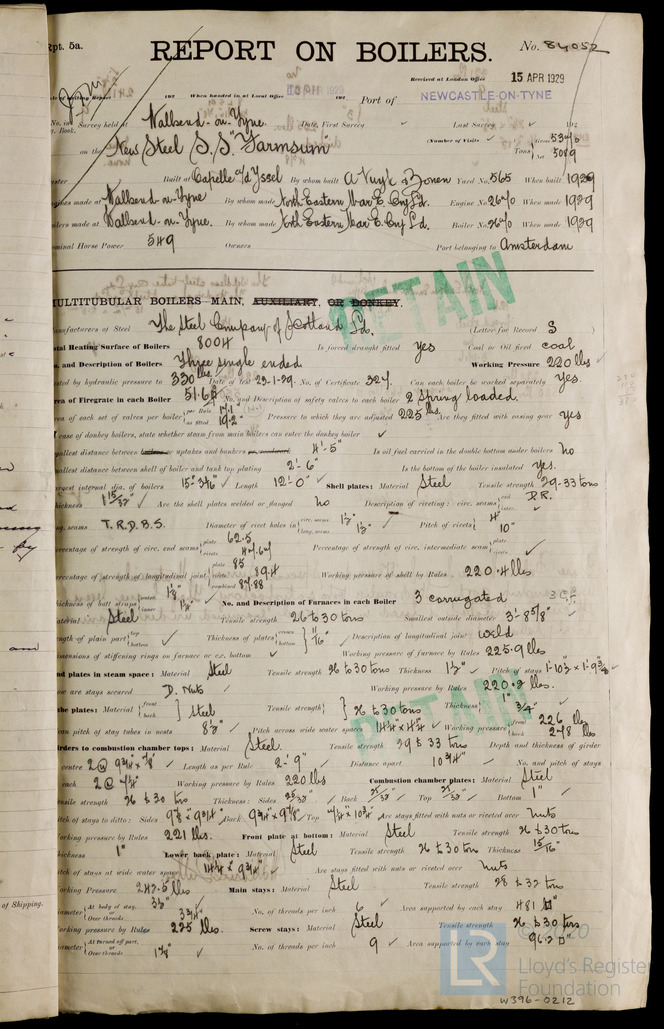 Rpt. 5a.
REPORT ON BOILERS.
No. 84052
Received at London Office 15 APR 1929
When handed in at Local Office
Port of NEWCASTLE-ON-TYNE
Survey held at Wallsend-on-Tyne Date, First Survey Last Survey
(Number of Visits
on the New Steel S.S. "Farmsum" Gross 5340 Tons Net 5089
Built at Capelle a/d Yssel By whom built A Vuyk & Zonen Yard No. 565 When built 1929
made at Wallsend-on-Tyne By whom made North Eastern Mar E. Cny Ld. Engine No. 2670 When made 1929
made at Wallsend-on-Tyne. By whom made North Eastern Mar E. Cny Ld. Boiler No. 2670 When made 1929
Nominal Horse Power 549 Owners Port belonging to Amsterdam
MULTITUBULAR BOILERS—MAIN, AUXILIARY, OR DONKEY.
DETAIN
Manufacturers of Steel The Steel Company of Scotland Ld. (Letter for Record S )
Total Heating Surface of Boilers 8004 Is forced draught fitted yes Coal or Oil fired coal
No. and Description of Boilers Three single ended Working Pressure 220 lbs
Tested by hydraulic pressure to 330 lbs Date of test 23-1-29. No. of Certificate 324. Can each boiler be worked separately yes.
Area of Firegrate in each Boiler 51.68 No. and Description of safety valves to each boiler 2 Spring loaded.
Area of each set of valves per boiler per Rule 17.1 as fitted 19.2 Pressure to which they are adjusted 225 lbs. Are they fitted with easing gear yes
In case of donkey boilers, state whether steam from main boilers can enter the donkey boiler
Smallest distance between boilers or uptakes and bunkers or woodwork 4'-5" Is oil fuel carried in the double bottom under boilers no
Smallest distance between shell of boiler and tank top plating 2'-6" Is the bottom of the boiler insulated yes.
Largest internal dia. of boilers 15'-3 1/16" Length 12'-0" Shell plates: Material Steel Tensile strength 29-33 tons
Thickness 1 15/32" Are the shell plates welded or flanged no Description of riveting: circ. seams end D.R.
long. seams T.R.D.B.S. Diameter of rivet holes in circ. seams 1 1/2" long. seams 1 1/2" Pitch of rivets 4" 10"
Percentage of strength of circ. end seams plate 62.5 rivets 44.64 Percentage of strength of circ. intermediate seam plate rivets
Percentage of strength of longitudinal joint plate 85 rivets 89.4 combined 87.88 Working pressure of shell by Rules 220.4 lbs
Thickness of butt straps outer 1 1/8" inner 1 1/4" No. and Description of Furnaces in each Boiler 3 corrugated
Material Steel Tensile strength 26 to 30 tons Smallest outside diameter 3'-8 5/8"
Length of plain part top bottom Thickness of plates crown bottom 11/16" Description of longitudinal joint weld
Dimensions of stiffening rings on furnace or c.c. bottom Working pressure of furnace by Rules 225.9 lbs
End plates in steam space: Material Steel Tensile strength 26 to 30 tons Thickness 1 1/2" Pitch of stays 1'-10 1/2" x 1'-9 3/8"
How are stays secured D. Nuts Working pressure by Rules 220.2 lbs.
DETAIN
Tube plates: Material front back Steel Tensile strength 26 to 30 tons Thickness 1" 3/4"
Mean pitch of stay tubes in nests 8 1/2" Pitch across wide water spaces 14 1/4" x 4 1/2" Working pressure front 226 lbs back 248 lbs
Girders to combustion chamber tops: Material Steel. Tensile strength 29 to 33 tons Depth and thickness of girder
at centre 2 @ 9 3/4" x 7/8" Length as per Rule 2'-9" Distance apart 10 3/4" No. and pitch of stays
in each 2 @ 7 1/4" Working pressure by Rules 220 lbs Combustion chamber plates: Material Steel
Tensile strength 26 to 30 tons Thickness: Sides 25/32" Back 25/32" Top 25/32" Bottom 1"
Pitch of stays to ditto: Sides 9 7/8" x 9 3/4" Back 9 3/4" x 9 7/8" Top 7 1/4" x 10 3/4" Are stays fitted with nuts or riveted over nuts
Working pressure by Rules 221 lbs. Front plate at bottom: Material Steel Tensile strength 26 to 30 tons
Thickness 1" Lower back plate: Material Steel Tensile strength 26 to 30 tons Thickness 15/16"
Pitch of stays at wide water space 14 1/4" x 9 3/4" Are stays fitted with nuts or riveted over nuts
Working Pressure 242.5 lbs Main stays: Material Steel Tensile strength 28 to 32 tons
Diameter At body of stay, or Over threads 3 1/2" 3 3/4" No. of threads per inch 6 Area supported by each stay 481 □"
Working pressure by Rules 225 lbs. Screw stays: Material Steel Tensile strength 26 to 30 tons
Diameter At turned off part, or Over threads 1 7/8" No. of threads per inch 9 Area supported by each stay 96.2 □"
of Shipping.
© 2020
LR
Lloyd's Register
Foundation
W396-0212